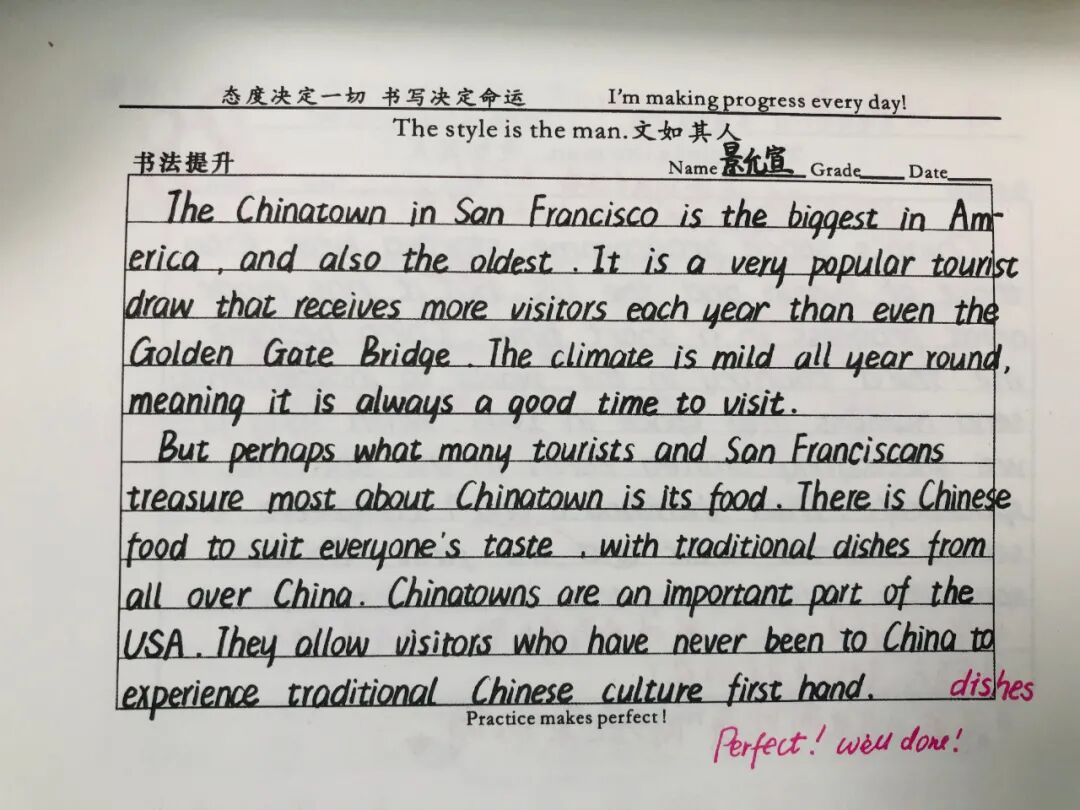 态度决定一切 书写决定命运 I'm making progress every day!
The style is the man.文如其人
书法提升 Name 景允宣 Grade Date
The Chinatown in San Francisco is the biggest in Am-
erica , and also the oldest . It is a very popular tourist
draw that receives more visitors each year than even the
Golden Gate Bridge . The climate is mild all year round,
meaning it is always a good time to visit.
But perhaps what many tourists and San Franciscans
treasure most about Chinatown is its food . There is Chinese
food to suit everyone's taste , with traditional dishes from
all over China. Chinatowns are an important part of the
USA . They allow visitors who have never been to China to
experience traditional Chinese culture first hand. dishes
Practice makes perfect!
Perfect! well done!